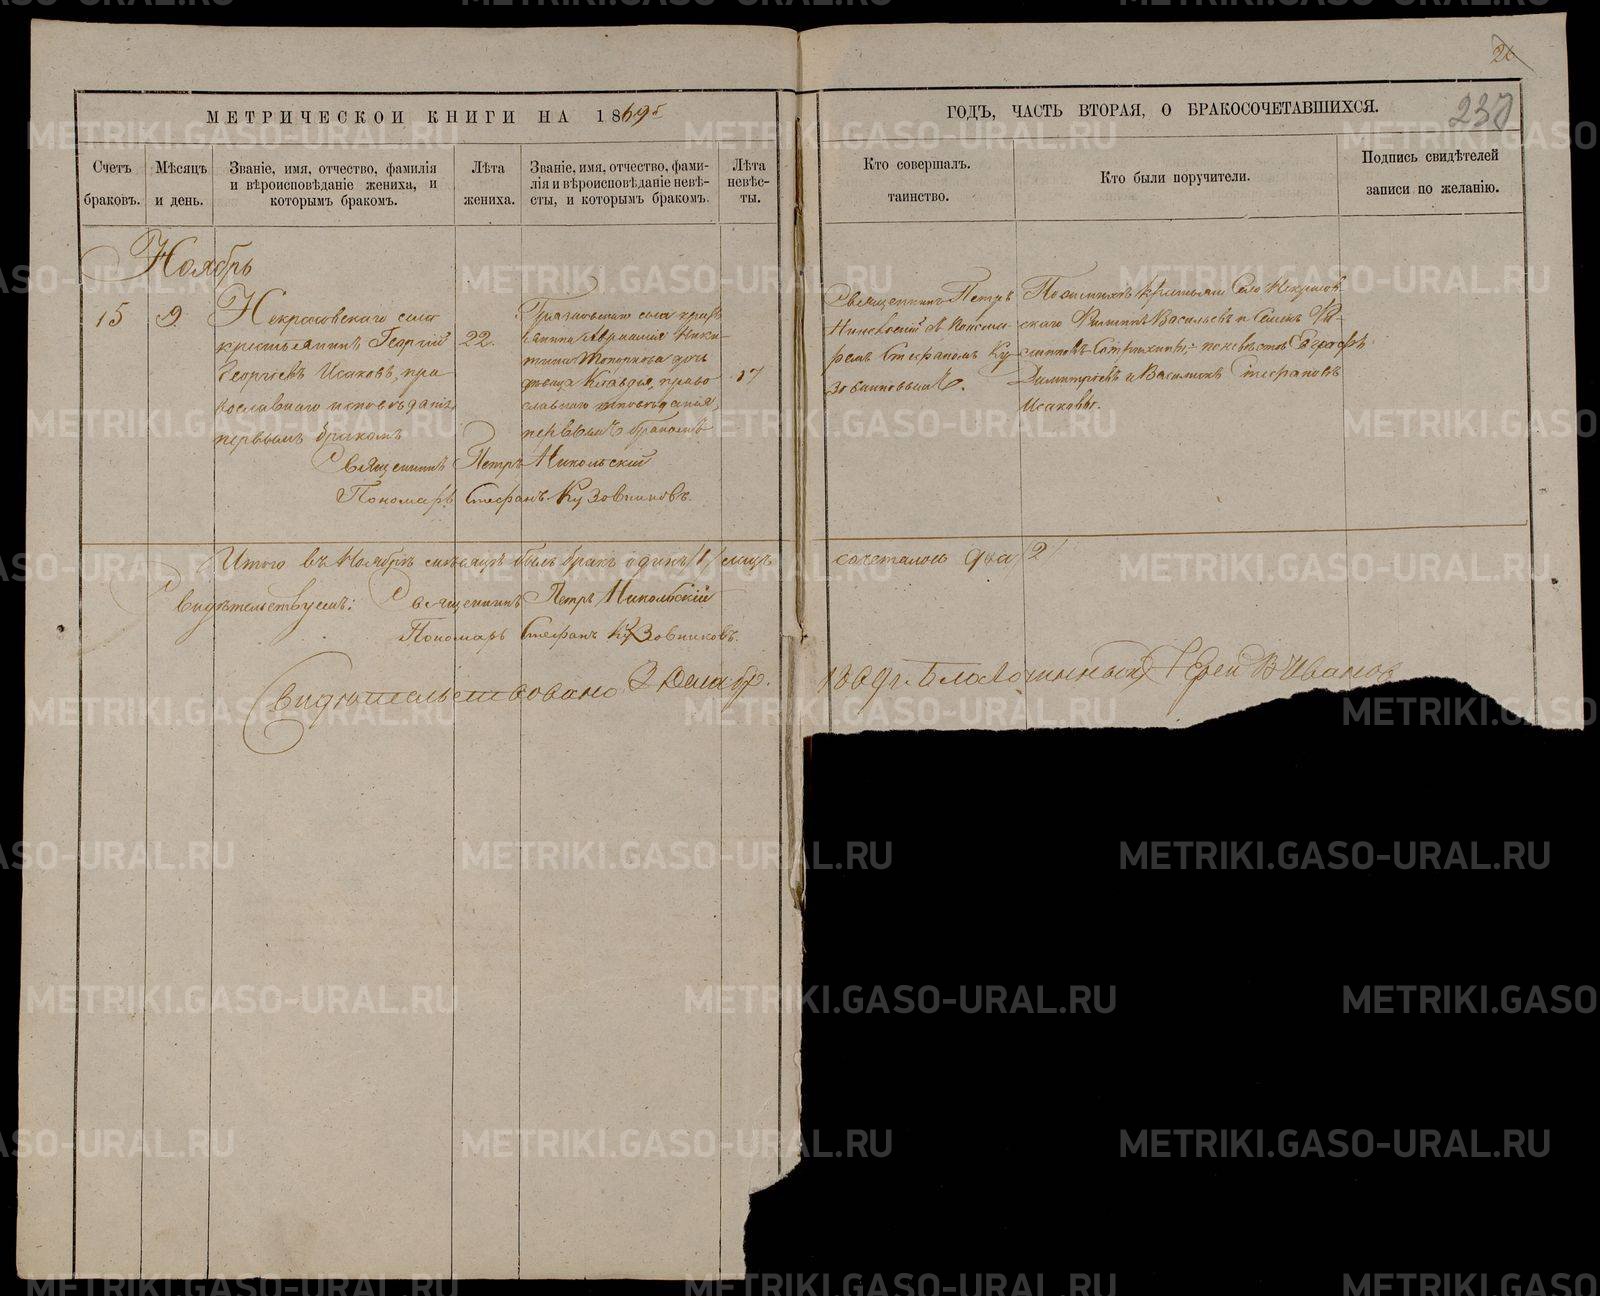 26
237
МЕТРИЧЕСКОЙ КНИГИ НА 1869й
ГОДЪ, ЧАСТЬ ВТОРАЯ, О БРАКОСОЧЕТАВШИХСЯ.
Счетъ браковъ.
Мѣсяцъ и день.
Званіе, имя, отчество, фамилія
и вѣроисповѣданіе жениха, и
которымъ бракомъ.
Лѣта
жениха.
Званіе, имя, отчество, фами-
лія и вѣроисповѣданіе невѣ-
сты, и которымъ бракомъ.
Лѣта
невѣс-
ты.
Кто совершалъ
таинство.
Кто были поручители.
Подпись свидѣтелей
записи по желанію.
Ноябрь
15
9.
Некрасовскаго села
крестьянинъ Георгій
Георгіевъ Исаковъ, пра
вославнаго исповѣданія,
первымъ бракомъ
22.
села крест
янина Никитина Топоркова дочь
дѣвица Клавдія, право
славнаго исповѣданія,
первымъ бракомъ
17
Священникъ Петръ
Никольскій съ Понома-
ремъ Стефаномъ Ку
зовниковымъ.
По женихѣ крестьяне Села Некрасов
скаго Филиппъ Васильевъ и Семенъ
по невѣстѣ
Димитріевъ и Василій Стефановъ
Исаковы.
Священникъ Петръ Никольскій
Пономарь Стефанъ Кузовниковъ.
Итого въ Ноябрѣ мѣсяцѣ былъ бракъ одинъ /1/ лицъ
сочеталось два /2/
Свидѣтельствуемъ: Священникъ Петръ Никольскій
Пономарь Стефанъ Кузовниковъ.
Свидѣтельствовано 2 Декабр.
1869 г. Благочинный Іерей В Ивановъ
METRIKI.GASO-URAL.RU